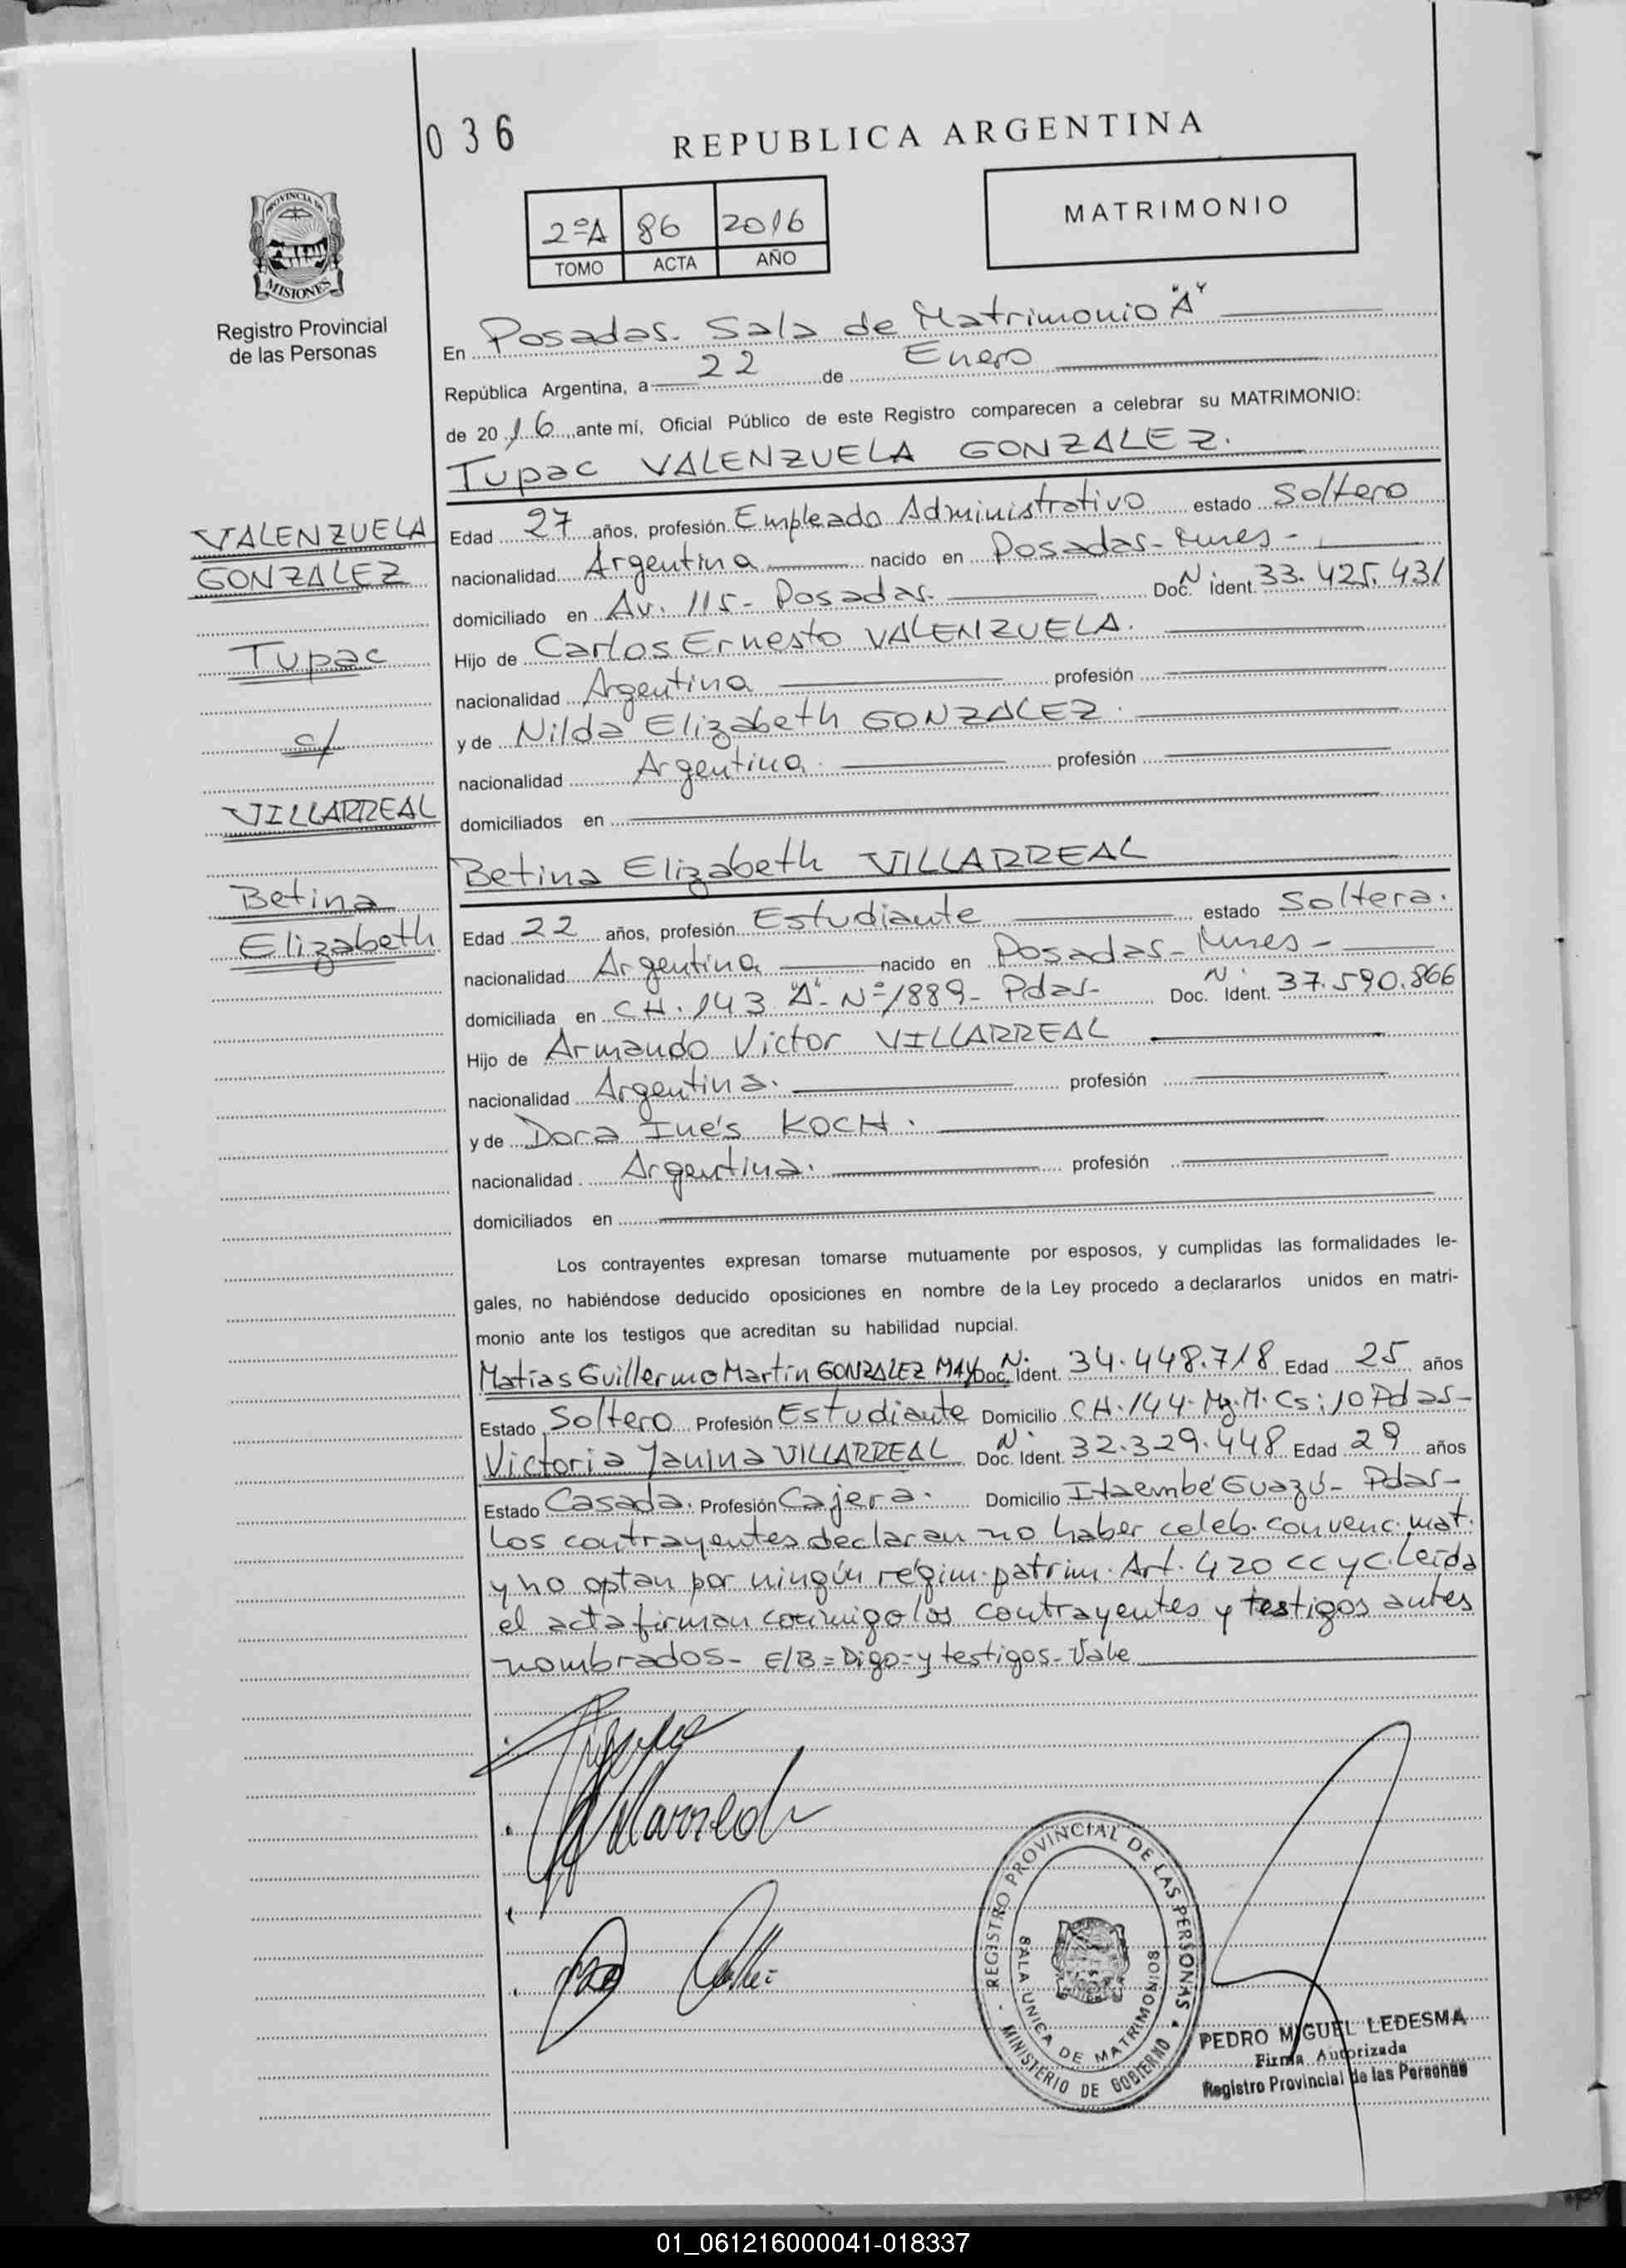 036
REPUBLICA ARGENTINA
PROVINCIA DE
MISIONES
Registro Provincial
de las Personas
2ºA 86 2016
TOMO ACTA AÑO
MATRIMONIO
En Posadas. Sala de Matrimonio "A"
República Argentina, a 22 de Enero
de 2016, ante mí, Oficial Público de este Registro comparecen a celebrar su MATRIMONIO:
Tupac VALENZUELA GONZALEZ.
VALENZUELA
GONZALEZ
Tupac
c/
VILLARREAL
Betina
Elizabeth
Edad 27 años, profesión Empleado Administrativo estado Soltero
nacionalidad Argentina nacido en Posadas - Mnes -
domiciliado en Av. 115 - Posadas. Doc. N. ident. 33.425.431
Hijo de Carlos Ernesto VALENZUELA.
nacionalidad Argentina profesión
y de Nilda Elizabeth GONZALEZ.
nacionalidad Argentina. profesión
domiciliados en
Betina Elizabeth VILLARREAL
Edad 22 años, profesión Estudiante estado Soltera.
nacionalidad Argentina nacido en Posadas - Mnes -
domiciliada en CH. 143 "A" - Nº 1889 - Pdas - Doc. N. Ident. 37.590.866
Hijo de Armando Victor VILLARREAL
nacionalidad Argentina. profesión
y de Dora Inés KOCH.
nacionalidad Argentina. profesión
domiciliados en
Los contrayentes expresan tomarse mutuamente por esposos, y cumplidas las formalidades le-
gales, no habiéndose deducido oposiciones en nombre de la Ley procedo a declararlos unidos en matri-
monio ante los testigos que acreditan su habilidad nupcial.
Matias Guillermo Martin GONZALEZ MAY Doc. N. Ident. 34.448.718 Edad 25 años
Estado Soltero Profesión Estudiante Domicilio CH. 144. Mz. M. Cs: 10 Pdas -
Victoria Yanina VILLARREAL Doc. N. Ident. 32.329.448 Edad 29 años
Estado Casada. Profesión Cajera. Domicilio Itaembé Guazú - Pdas -
Los contrayentes declaran no haber celeb. convenc. mat.
y no optan por ningún régim. patrim. Art. 420 CC y C. Leída
el acta firman conmigo los contrayentes y testigos antes
nombrados - E/B = Digo = y testigos - Vale
Villarreal
REGISTRO PROVINCIAL DE LAS PERSONAS
SALA UNICA DE MATRIMONIOS
MINISTERIO DE GOBIERNO
PEDRO MIGUEL LEDESMA
Firma Autorizada
Registro Provincial de las Personas
01_061216000041-018337